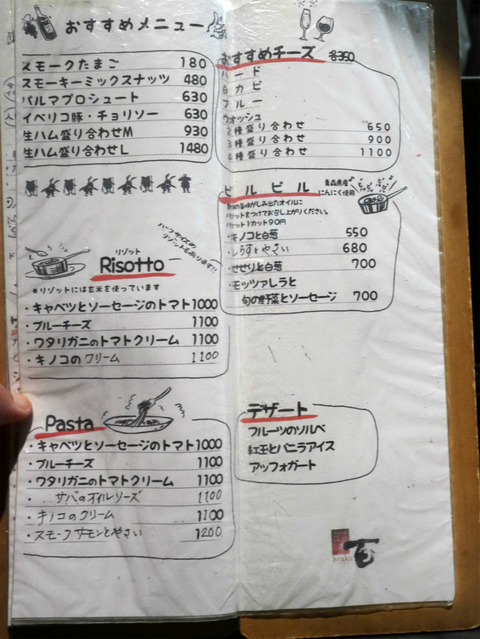 おすすめメニュー
スモークたまご 180
スモーキーミックスナッツ 480
パルマプロシュート 630
イベリコ豚・チョリソー 630
生ハム盛り合わせM 930
生ハム盛り合わせL 1480
リゾット
Risotto
ハーフサイズの
リゾットもあります!!
*リゾットには玄米を使っています
・キャベツとソーセージのトマト 1000
・ブルーチーズ 1100
・ワタリガニのトマトクリーム 1100
・キノコのクリーム 1100
Pasta
・キャベツとソーセージのトマト 1000
・ブルーチーズ 1100
・ワタリガニのトマトクリーム 1100
・サバのオイルソース 1100
・キノコのクリーム 1100
・スモークサーモンとやさい 1200
おすすめチーズ 各350
ハード
白カビ
ブルー
ウォッシュ
2種盛り合わせ 650
3種盛り合わせ 900
4種盛り合わせ 1100
ピルピル
青森県産
にんにく使用
旨味がしみ出たオイルに
バケットをつけてお召し上がりください。
バケット1カット90円
・キノコと白葱 550
・しらすとやさい 680
・せせりと白葱 700
・モッツァレラと
旬の野菜とソーセージ 700
デザート
フルーツのソルベ
紅玉とバニラアイス
アッフォガート